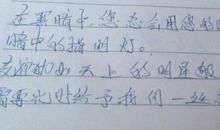 在黑暗中,您总会用您的
暗中的指明灯。
天上的明星般
需要此时给予我们一丝